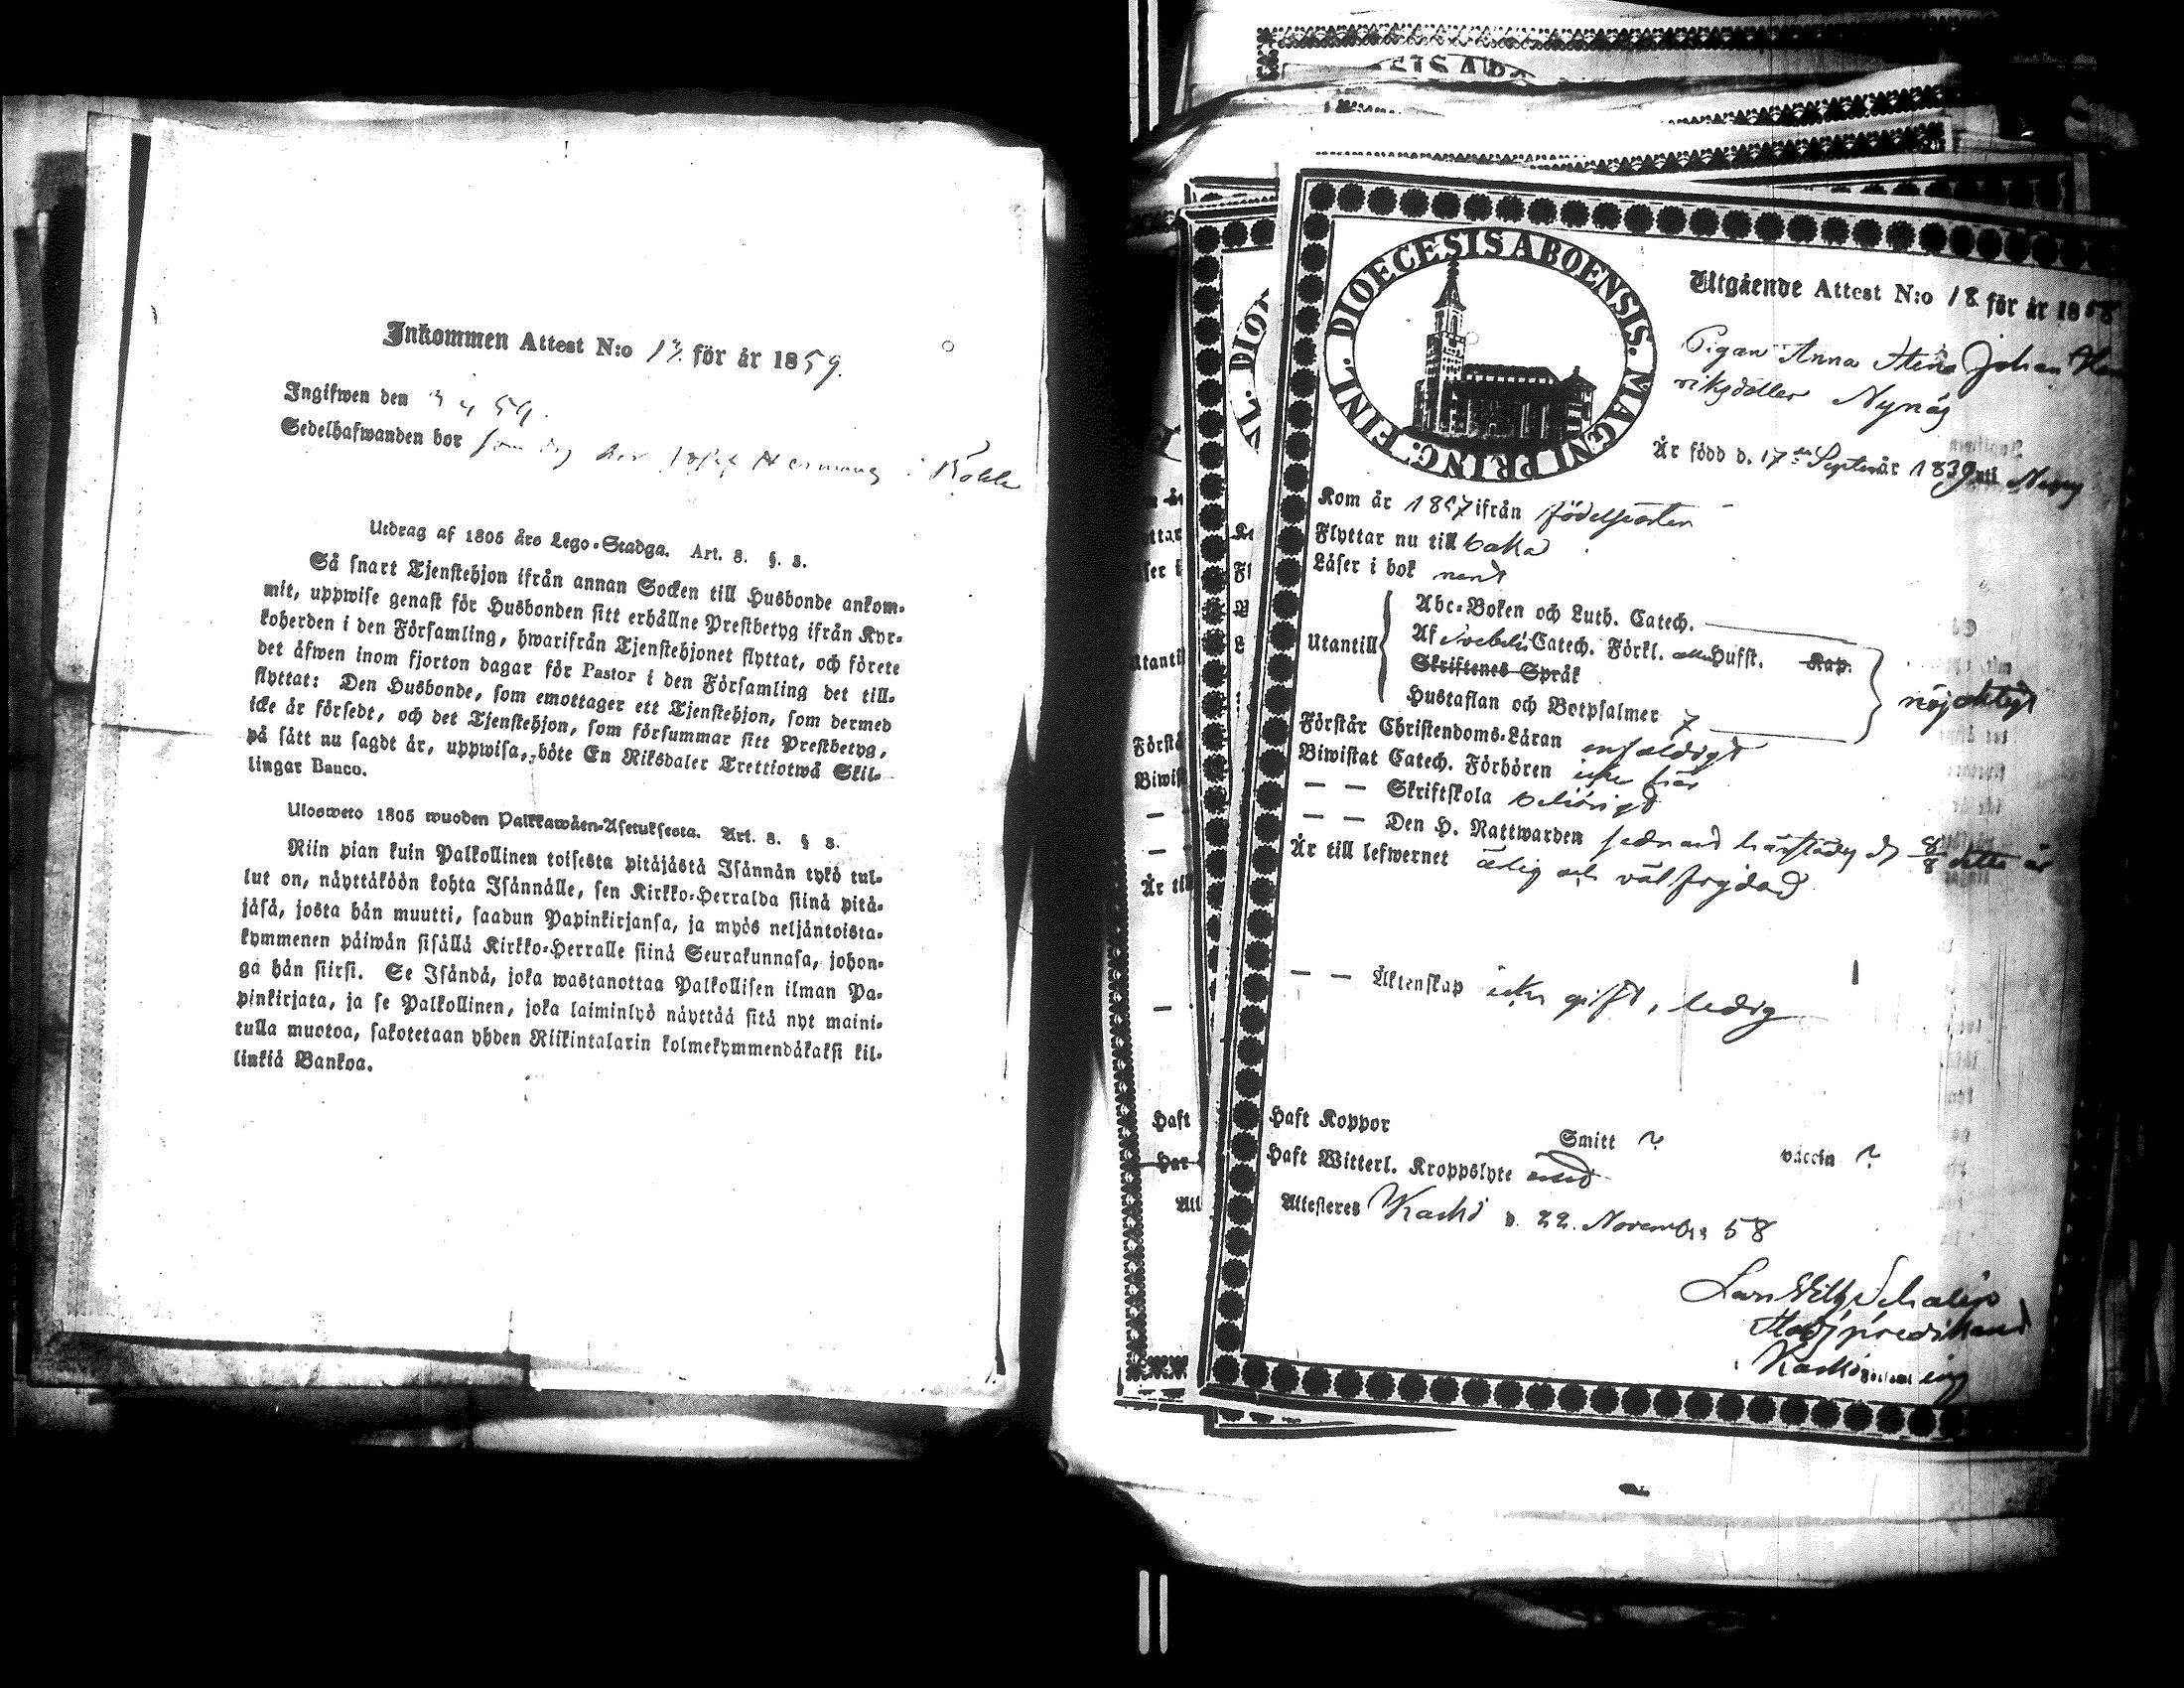 Inkommen Attest N:o 13. för år 1859.
Ingifwen den 3 59.
Sedelhafwanden bor som hos
Utdrag af 1805 års Lego-Stadga. Art. 8. §. 3.
Så snart Tjenstehjon ifrån annan Socken till Husbonde ankom-
mit, uppwise genast för Husbonden sitt erhållne Prestbetyg ifrån Kyr-
koherden i den Församling, hwarifrån Tjenstehjonet flyttat, och förete
det åfwen inom fjorton dagar för Pastor i den Församling det till-
flyttat: Den Husbonde, som emottager ett Tjenstehjon, som dermed
icke är försedt, och det Tjenstehjon, som försummar sitt Prestbetyg,
på sått nu sagdt är, uppwisa, böte En Riksdaler Trettiotwå Skil-
lingar Banco.
Ulosweto 1805 wuoden Palkkawäen-Asetuksesta. Art. 8. § 3.
Niin pian kuin Palkollinen toisesta pitäjästä Isännän tykö tul-
lut on, näyttäköön kohta Isännälle, sen Kirkko-Herralda siinä pitä-
jäsä, josta hän muutti, saadun Papinkirjansa, ja myös neljäntoista-
kymmenen päiwän sisällä Kirkko-Herralle siinä Seurakunnasa, johon-
ga hän siirsi. Se Isändä, joka wastanottaa Palkollisen ilman Pa-
pinkirjata, ja se Palkollinen, joka laiminlyö näyttää sitä nyt maini-
tulla muotoa, sakotetaan yhden Riikintalarin kolmekymmendäkaksi kil-
linkiä Bankoa.
DIOECESIS ABOENSIS. MAGNI PRINC. FINL.
Utgående Attest N:o 18 för år 1858
Pigan Anna Stina Johan
riksdotter Nynäs
Är född d. 17de Septem år 1839 uti
Kom år 1857 ifrån födelseorten
Flyttar nu till baka
Läser i bok
Utantill
Abc-Boken och Luth. Catech.
Af Svebelii Catech. Förkl. Husst. Kap.
Skriftenes Språk
Hustaflan och Botpsalmer 7
nöjaktigt
Förstår Christendoms-Läran enfaldigt
Biwistat Catech. Förhören icke här
— — Skriftskola behörigt
— — Den H. Nattwarden sednast härstädes d. 8/8 detta år
Är till lefwernet ärlig och väl frejdad
— — Äktenskap icke gift, ledig
Haft Koppor Smitt ? vaccin ?
Haft Witterl. Kroppslyte
Attesteras Kaskö d. 22. November 58
Lars Wilh. Schalin
predikant
Kaskö